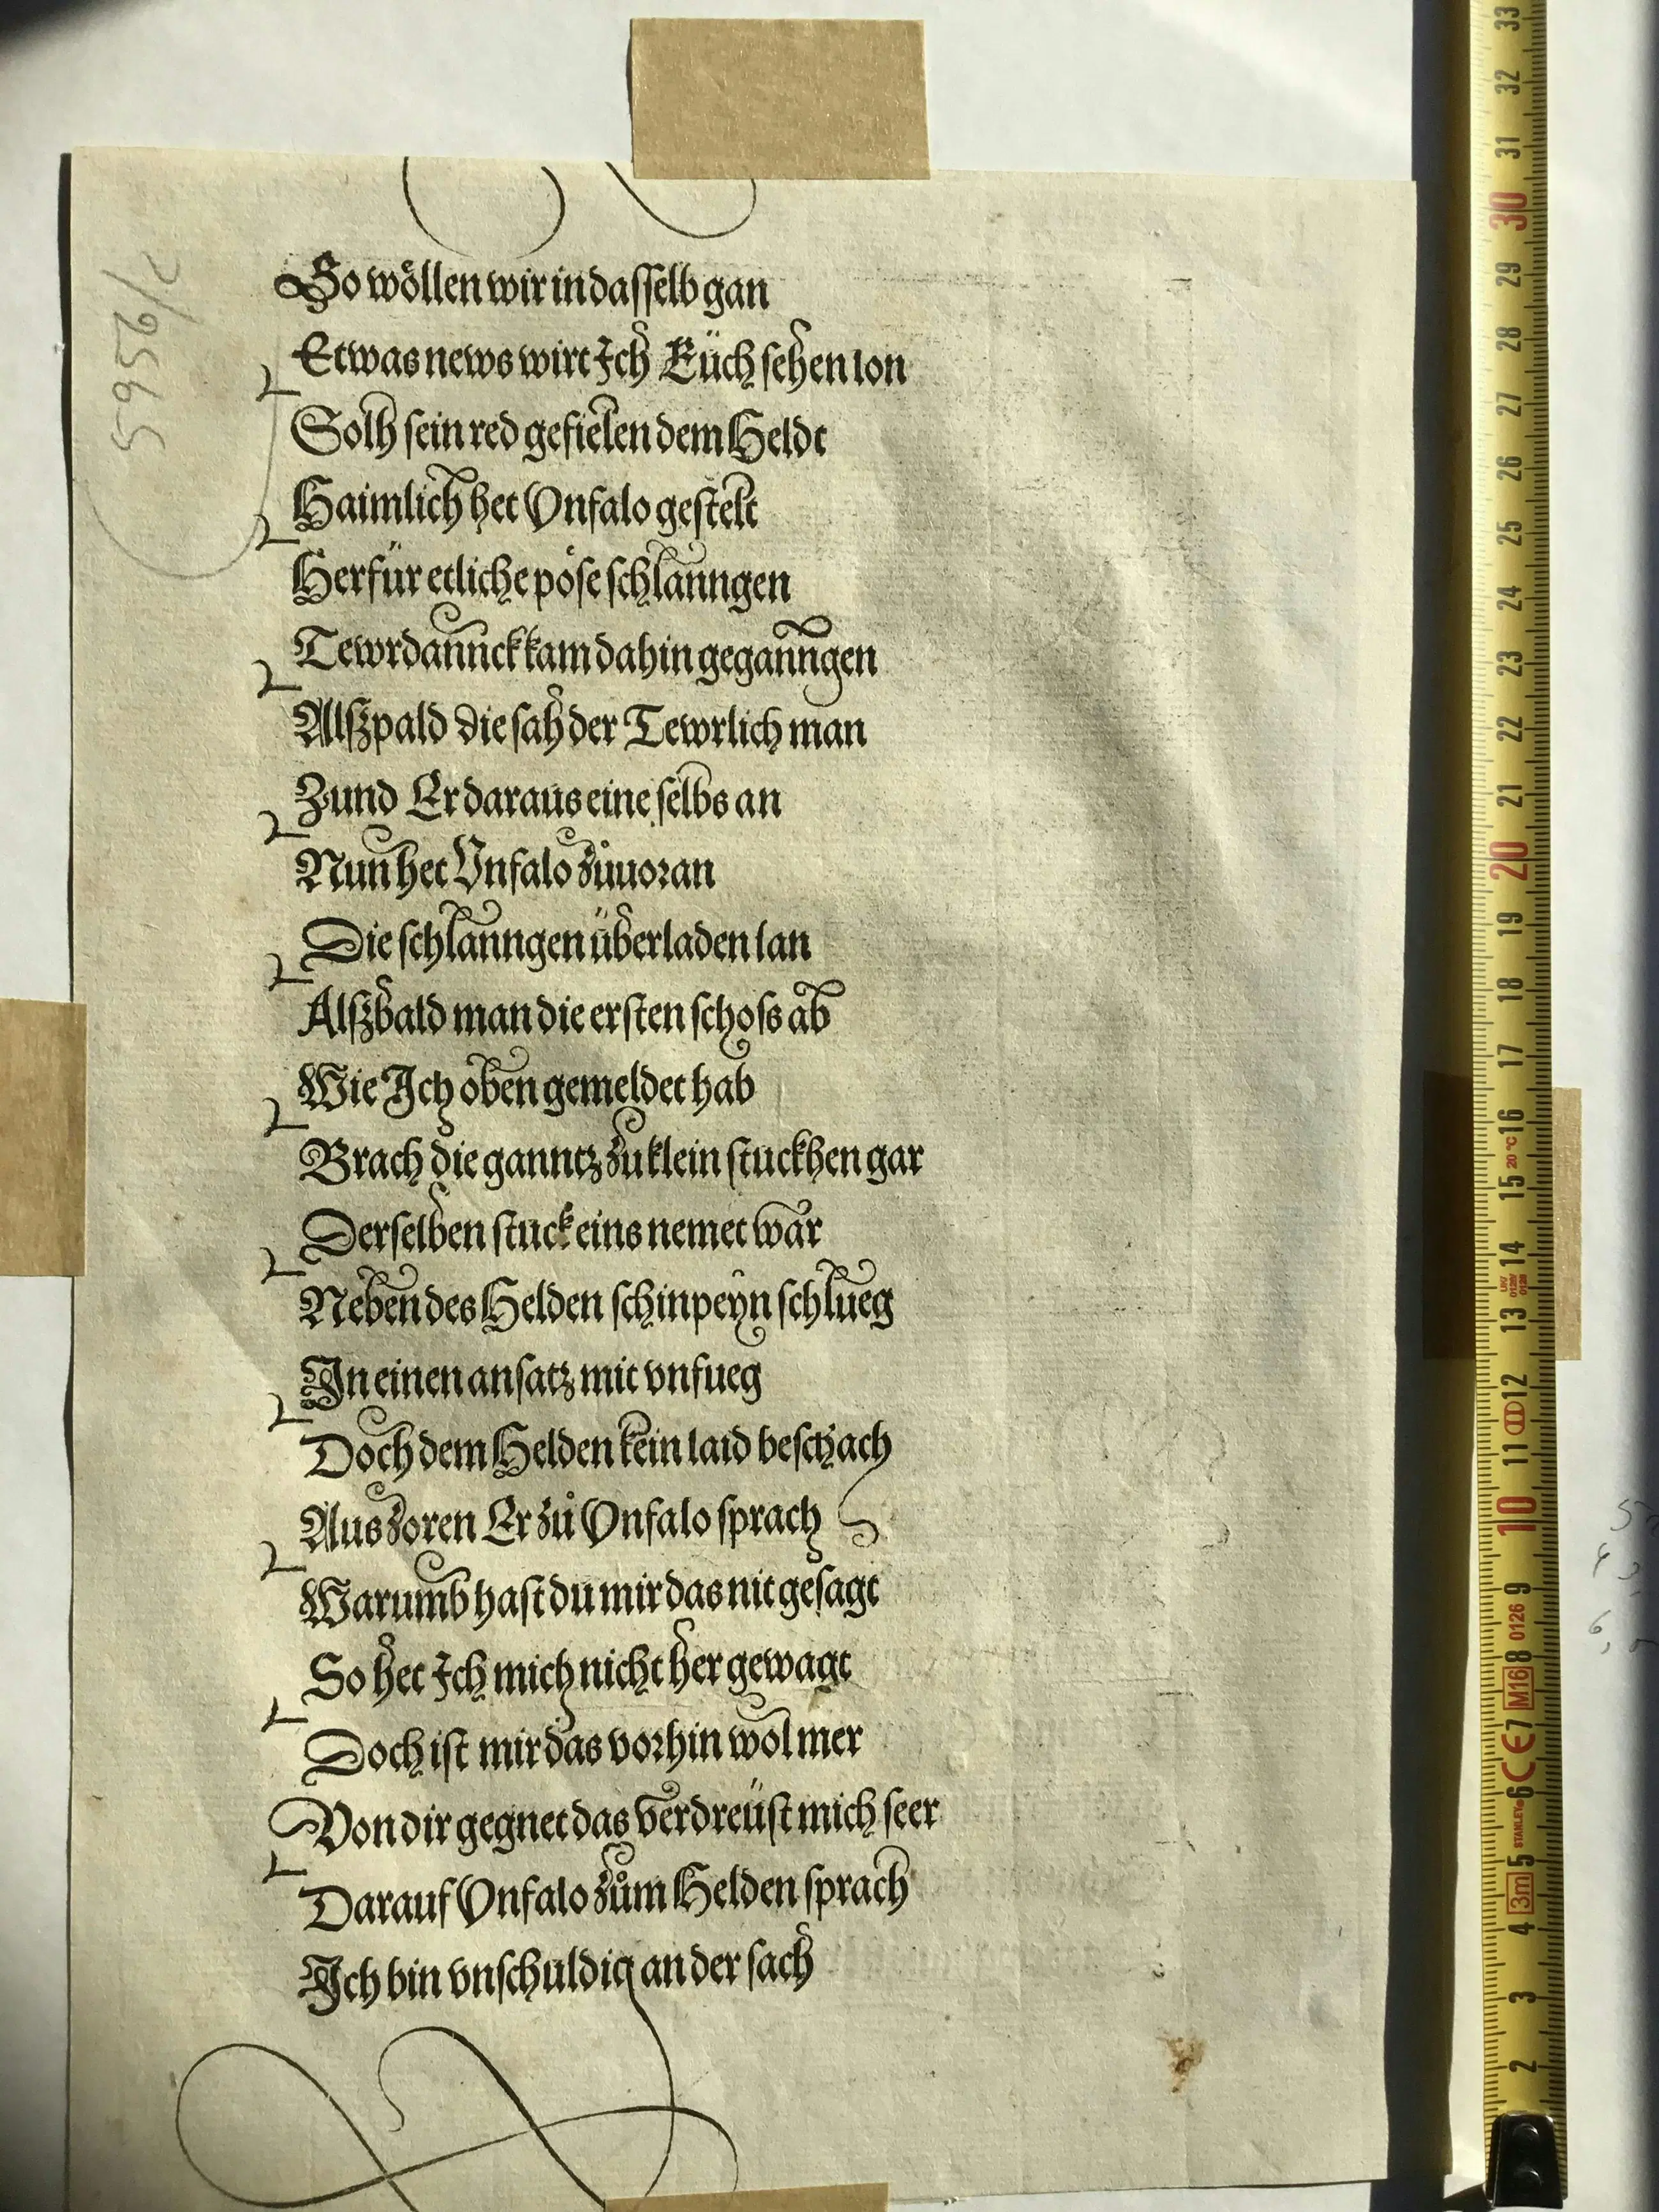 So wöllen wir in dasselb gan
Etwas news wirt Ich Euch sehen lon
Solh sein red gefielen dem Heldt
Haimlich het Unfalo gestelt
Herfür etliche pöse schlanngen
Tewrdannck kam dahin geganngen
Alßpald die sah der Tewrlich man
Zund Er daraus eine selbs an
Nun het Unfalo zůuoran
Die schlanngen überladen lan
Alßbald man die ersten schoss ab
Wie Ich oben gemeldet hab
Brach die ganntz zu klein stuckhen gar
Derselben stuck eins nemet war
Neben des Helden schinpeyn schlueg
In einen ansatz mit vnfueg
Doch dem Helden kein laid beschach
Aus zoren Er zů Unfalo sprach
Warumb hast du mir das nit gesagt
So het Ich mich nicht her gewagt
Doch ist mir das vorhin wol mer
Von dir gegnet das verdreüst mich seer
Darauf Unfalo zům Helden sprach
Ich bin vnschuldig an der sach
5956/c
33
32
31
30
29
28
27
26
25
24
23
22
21
20
19
18
17
16
20°C
15
14
13
12
11
10
9
0126
8
M16
7
CE
6
STANLEY
5
3m
4
3
2